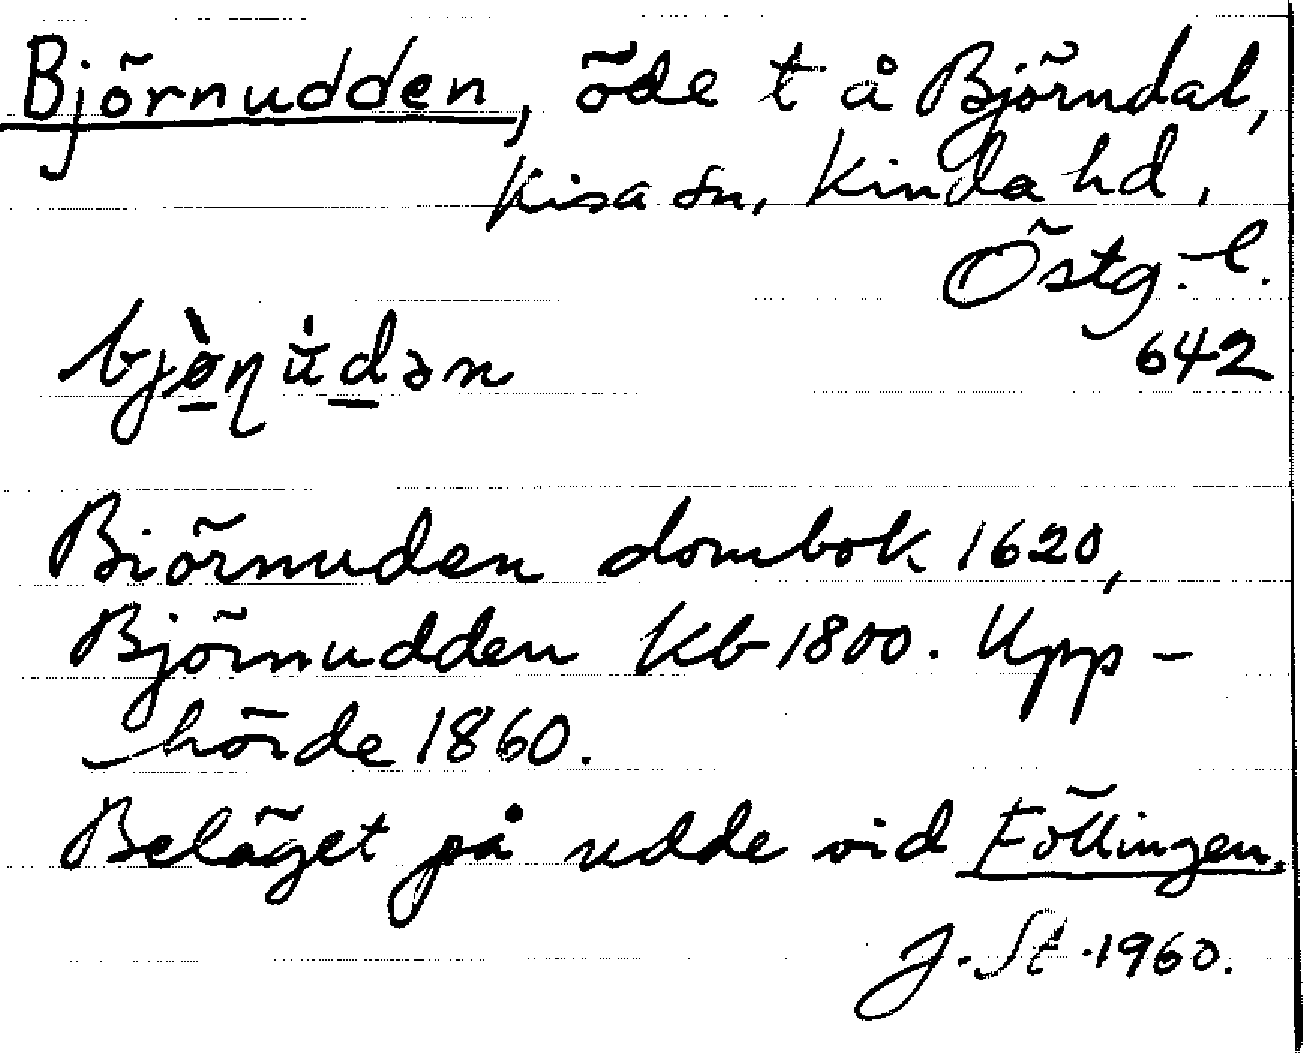 Björnudden, öde t å Björndal,
Kisa sn, Kinda hd,
Östg. l.
642
bjø̀ɳu̇dən
Biörnuden dombok 1620,
Björnudden Kb 1800. Upp-
hörde 1860.
Beläget på udde vid Föllingen.
J. St. 1960.